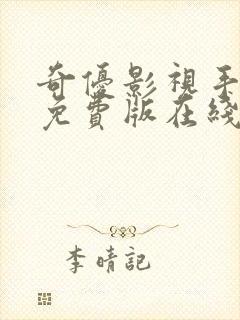 奇優影視手
免費版在綫
李晴記